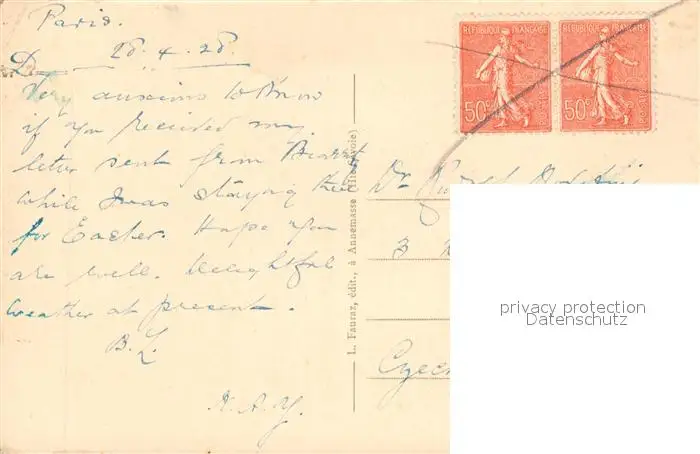 Paris.
28.4.28.
D
Very anxious to know
if you received my
letter sent from Biarritz
while I was staying there
for Easter. Hope you
are well. Delightful
weather at present.
B. L.
RÉPUBLIQUE FRANÇAISE
50c
POSTES
RÉPUBLIQUE FRANÇAISE
50c
POSTES
L. Fauraz, édit., à Annemasse (Hte-Savoie)
Dr
3
Czech
privacy protection
Datenschutz